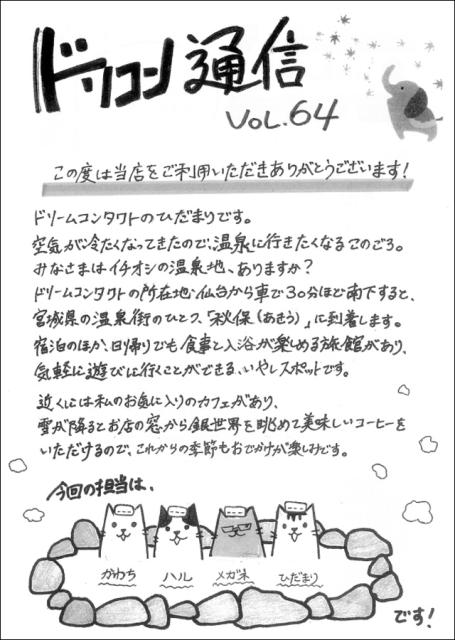 ドリコン通信
VOL.64
この度は当店をご利用いただきありがとうございます!
ドリームコンタクトのひだまりです。
空気が冷たくなってきたので、温泉に行きたくなるこのごろ。
みなさまはイチオシの温泉地、ありますか?
ドリームコンタクトの所在地・仙台から車で30分ほど南下すると、
宮城県の温泉街のひとつ、「秋保(あきう)」に到着します。
宿泊のほか、日帰りでも食事と入浴が楽しめる旅館があり、
気軽に遊びに行くことができる、いやしスポットです。
近くには私のお気に入りのカフェがあり、
雪が降るとお店の窓から銀世界を眺めて美味しいコーヒーを
いただけるので、これからの季節もおでかけが楽しみです。
今回の担当は、
かわち ハル メガネ ひだまり
です!